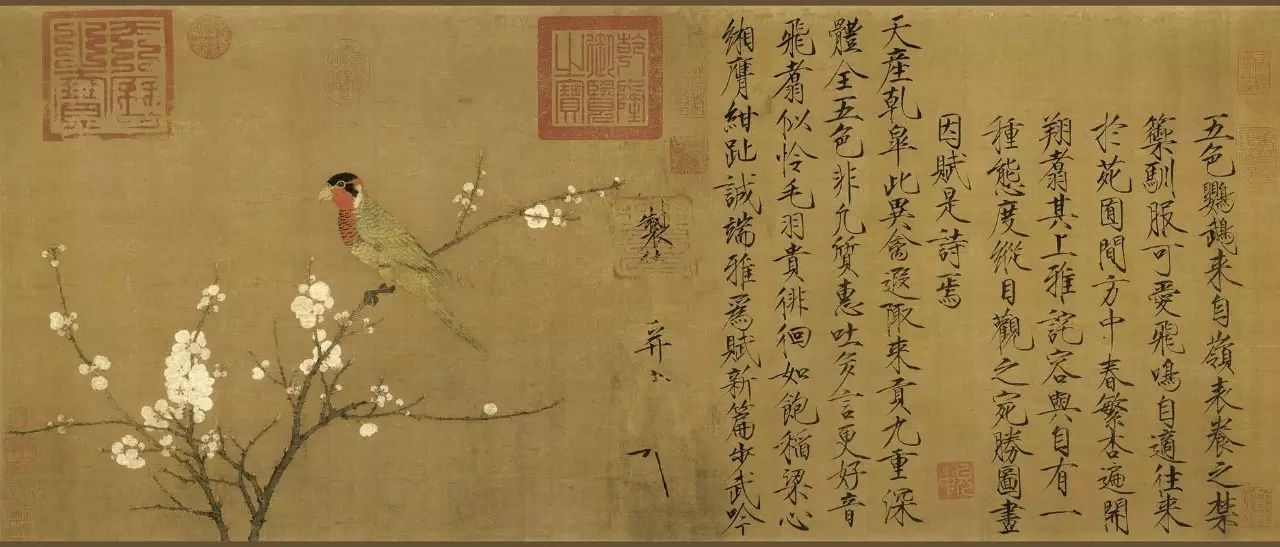 五色鸚鵡來自嶺表養之禁
籞馴服可愛飛鳴自適往來
於苑囿間方中春繁杏遍開
翔翥其上雅詫容與自有一
種態度縱目觀之宛勝圖畫
因賦是詩焉
天產乾皋此異禽遐陬來貢九重深
體全五色非凡質惠吐多言更好音
飛翥似憐毛羽貴徘徊如飽稻粱心
緗膺紺趾誠端雅爲賦新篇步武吟
製
并
乾隆御覽之寶